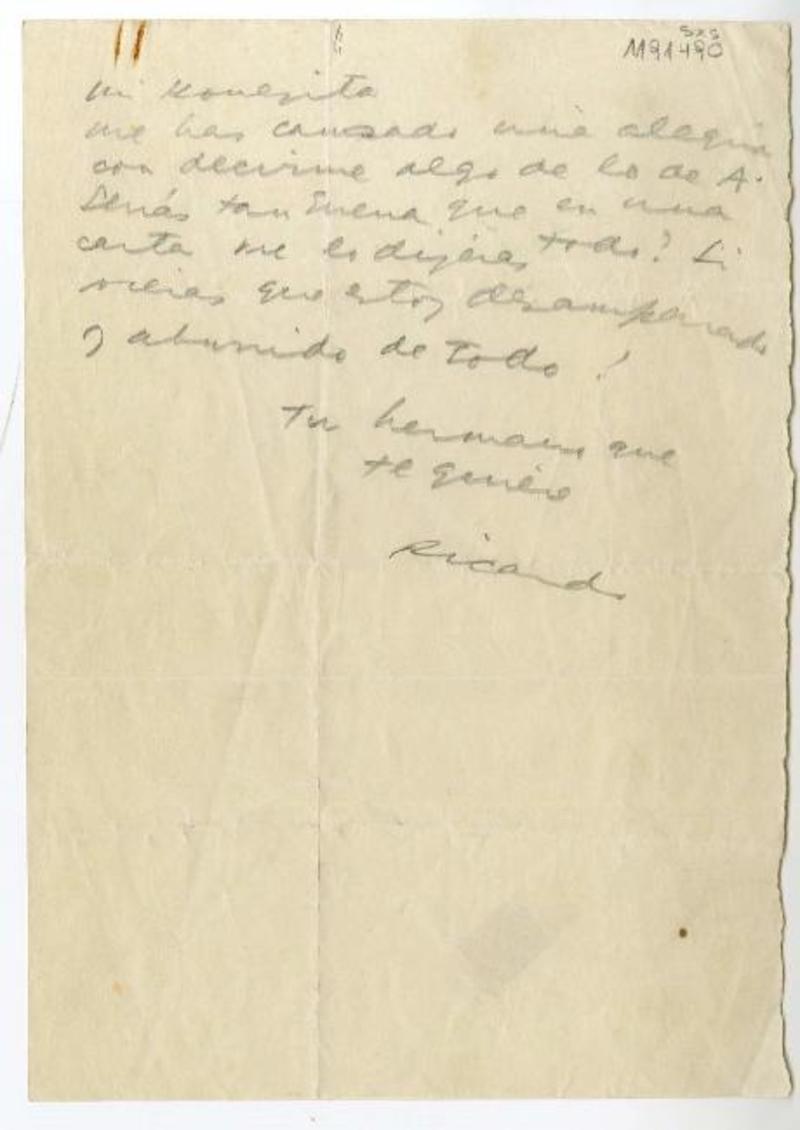 5x5
M91490
mi Monerita
me has causado una alegria
con decirme algo de lo de A.
Serás tan buena que en una
carta me lo dijéras todo? Si
vieras que estoy desamparado
y aburrido de todo!
Tu hermano que
te quiére
Ricardo